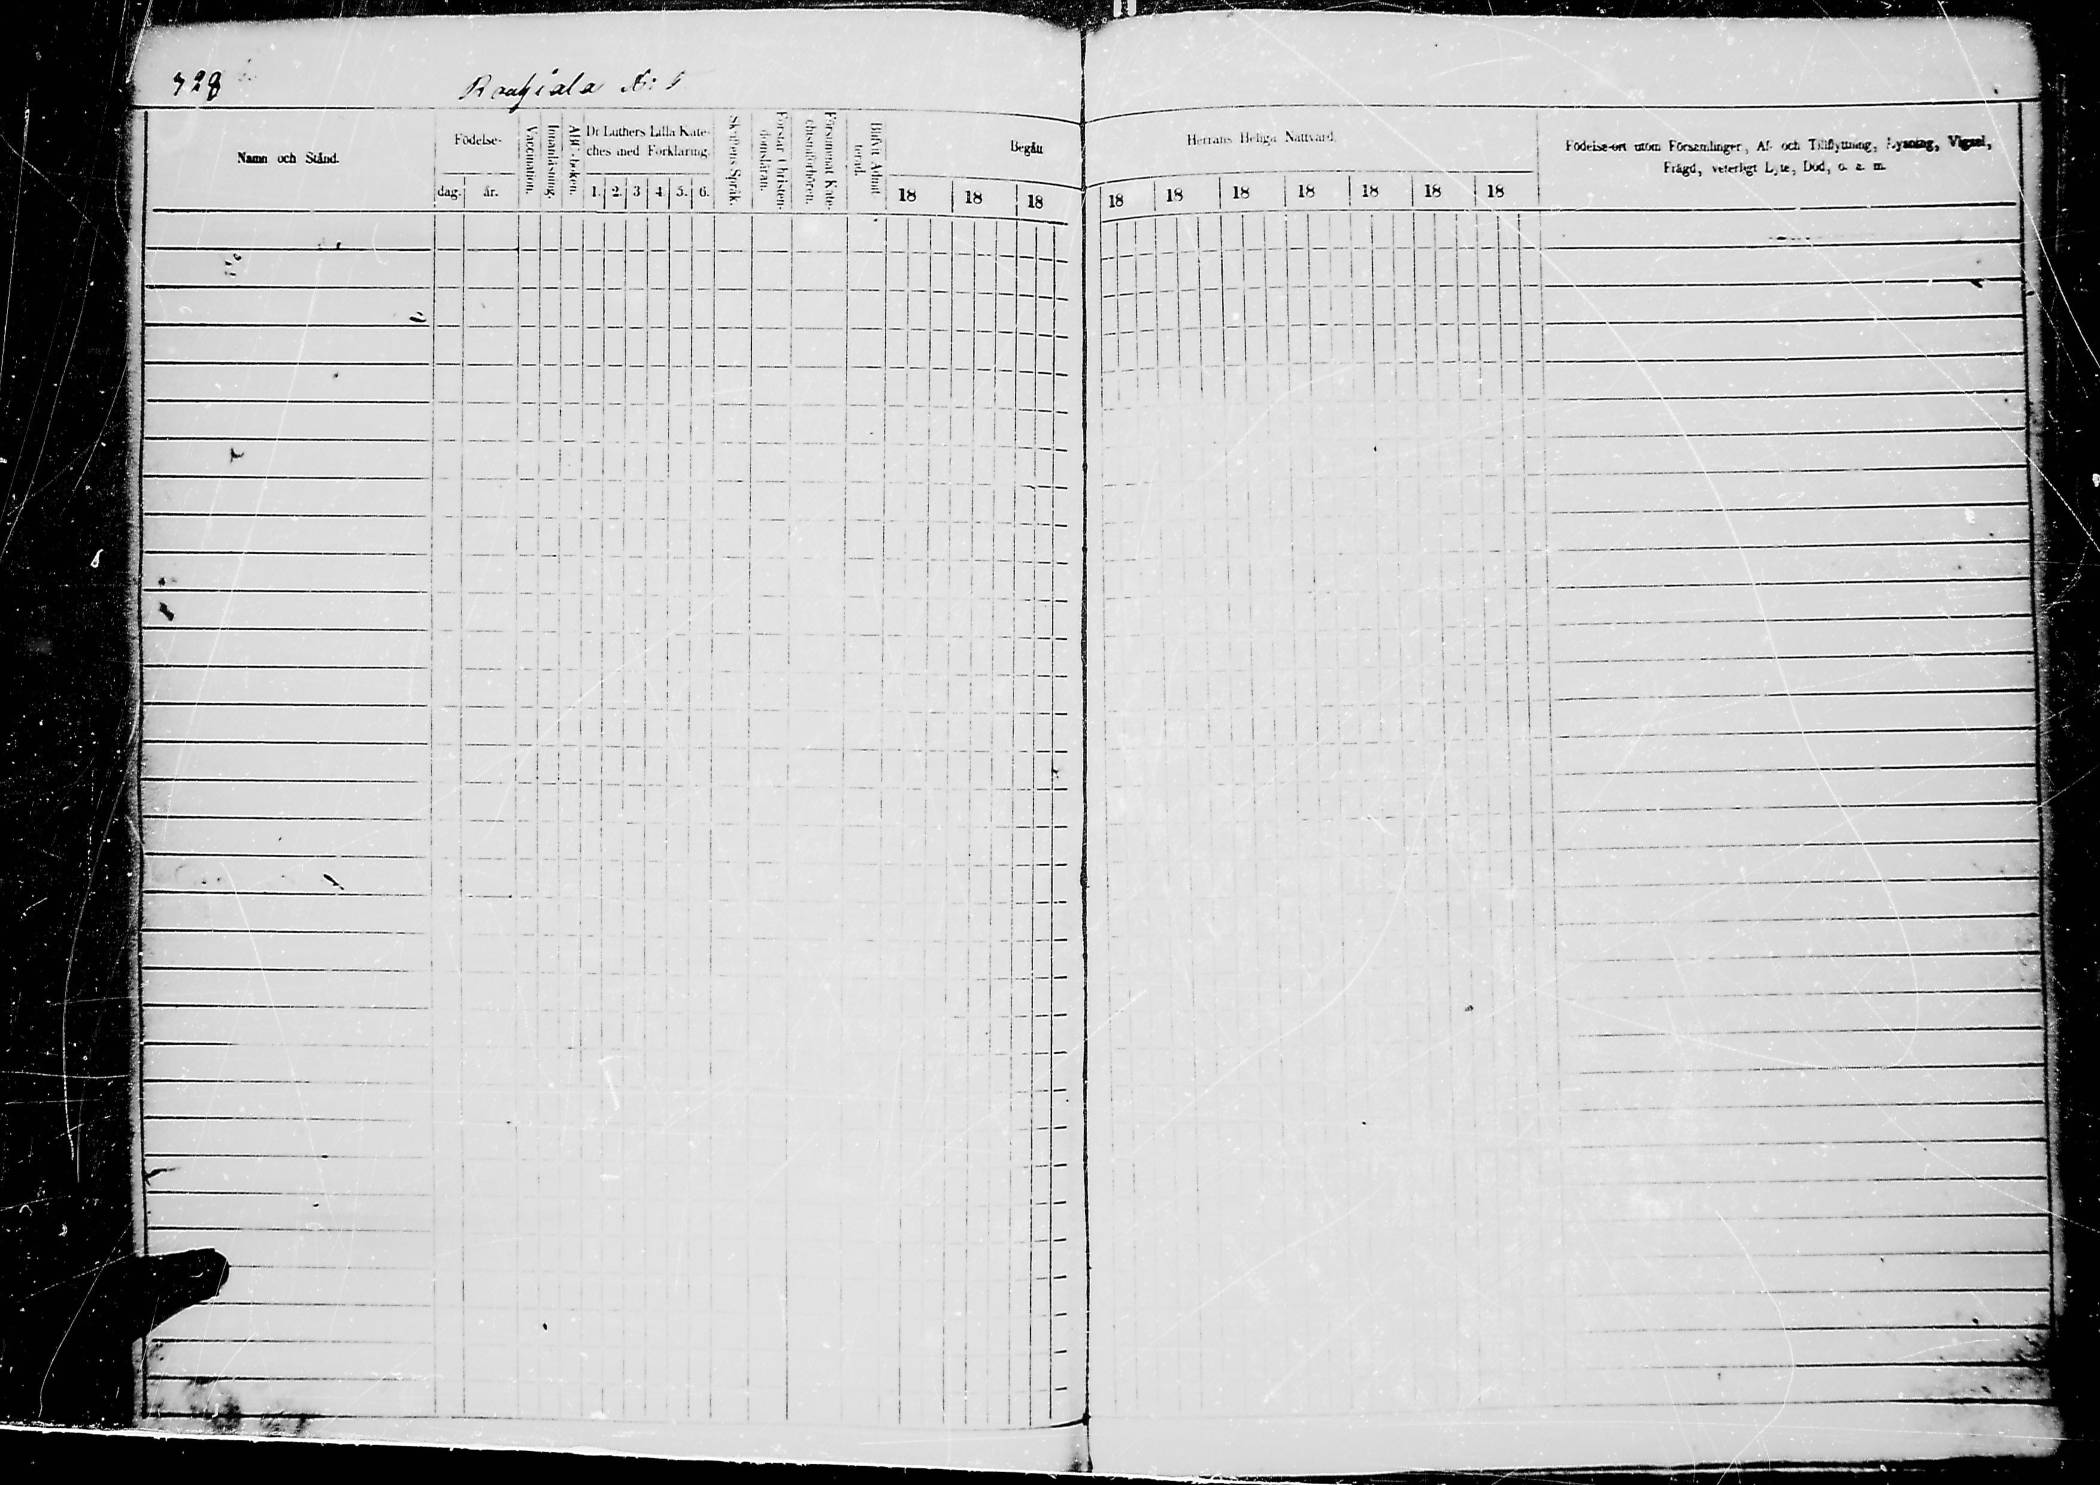 728
Namn och Stånd.
Födelse-
dag.
år.
Vaccination.
Innanläsning.
ABC-boken.
Dr Luthers Lilla Kate-
ches med Förklaring.
1. 2. 3 4. 5. 6.
Skriftens Språk.
Förstår Christen-
domsläran.
Försummat Kate-
chismiförhören.
Blifvit Admit-
terad.
Begått
18 18 18
Herrans Heliga Nattvard.
18 18 18 18 18 18 18
Födelse-ort utom Församlingen, Af- och Tillflyttning, Lysning, Vigsel,
Frägd, veterligt Lyte, Död, o. s. m.